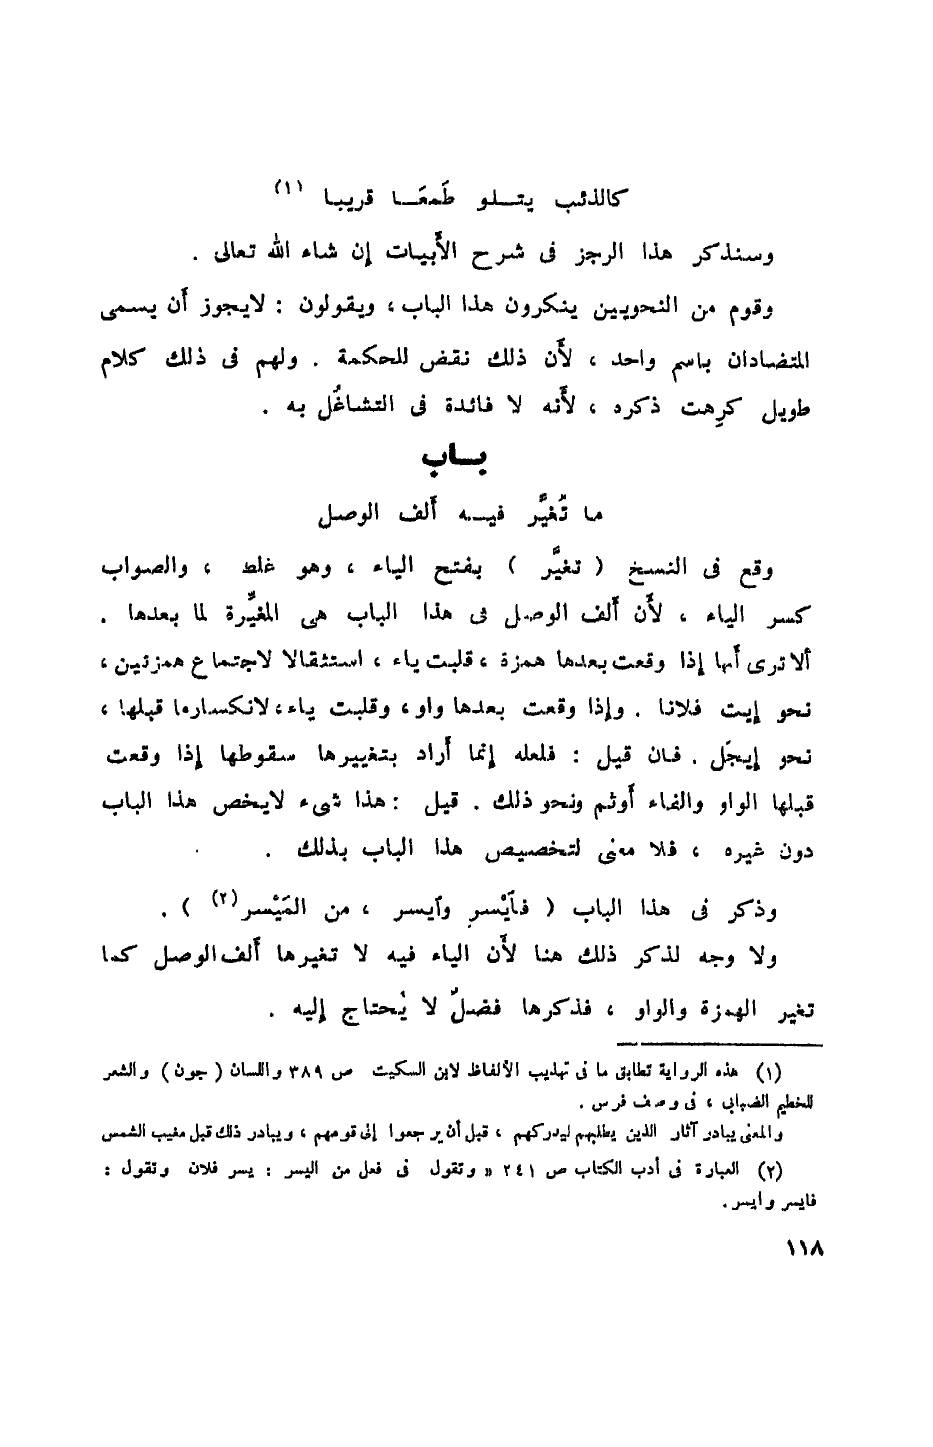 كالذئب يتلو طَمعَا قريبا (١)
وسنذكر هذا الرجز فى شرح الأَبيات إن شاء الله تعالى .
وقوم من النحويين ينكرون هذا الباب ، ويقولون : لايجوز أَن يسمى
المتضادان باسم واحد ، لأَن ذلك نقض للحكمة . ولهم فى ذلك كلام
طويل كرِهت ذكره ، لأَنه لا فائدة فى التشاغُل به .
بــاب
ما تُغيَّر فيه أَلف الوصل
وقع فى النسخ ( تغيَّر ) بفتح الياء ، وهو غلط ، والصواب
كسر الياء ، لأَن أَلف الوصل فى هذا الباب هى المغيِّرة لما بعدها .
ألا ترى أَنها إذا وقعت بعدها همزة ، قلبت ياء ، استثقالا لاجتماع همزتين ،
نحو إيت فلانا . وإذا وقعت بعدها واو ، وقلبت ياء ، لانكسارها قبلها ،
نحو إيجَل . فان قيل : فلعله إنما أَراد بتغييرها سقوطها إذا وقعت
قبلها الواو والفاء أَوثم ونحو ذلك . قيل : هذا شىء لايخص هذا الباب
دون غيره ، فلا معنى لتخصيص هذا الباب بذلك .
وذكر فى هذا الباب ( فٱيْسرِ وٱيسر ، من المَيْسر (٢) ) .
ولا وجه لذكر ذلك هنا لأَن الياء فيه لا تغيرها أَلف الوصل كما
تغير الهمزة والواو ، فذكرها فضلٌ لا يُحتاج إليه .
(١) هذه الرواية تطابق ما فى تهذيب الألفاظ لابن السكيت ص ٣٨٩ واللسان ( جون ) والشعر
للخطيم الضبابى ، فى وصف فرس .
والمعنى يبادر آثار الذين يطلبهم ليدركهم ، قبل أن يرجعوا إلى قومهم ، ويبادر ذلك قبل مغيب الشمس
(٢) العبارة فى أدب الكتاب ص ٢٤١ « وتقول فى فعل من اليسر : يسر فلان وتقول :
فايسر وايسر .
١١٨